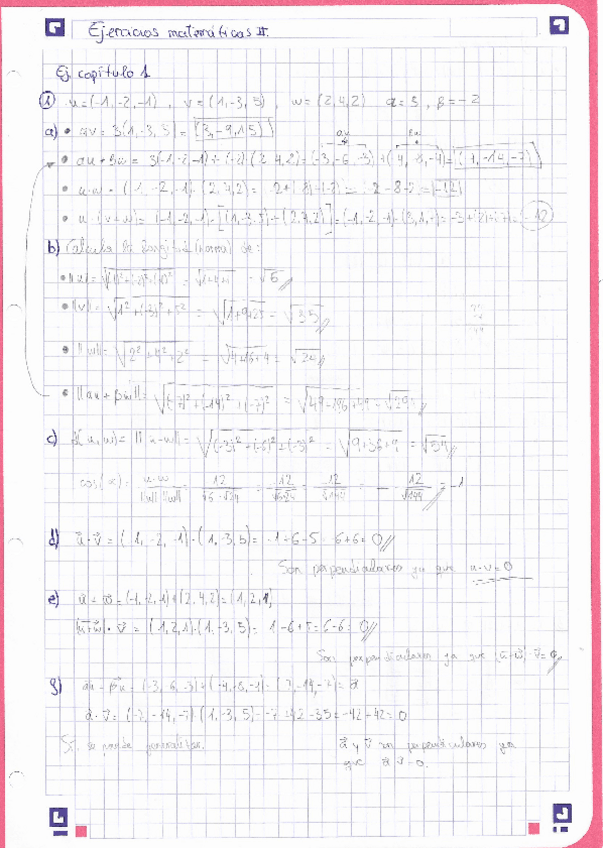 Ejercicios matemáticas II.
Ej capítulo 1
1) u=(-1,-2,-1), v=(1,-3,5), w=(2,4,2) α=3, β=-2
a) • αv = 3(1,-3,5) = (3,-9,15)
• αu + βw = 3(-1,-2,-1)+(-2)(2,4,2) = (-3,-6,-3)+(-4,-8,-4) = (-7,-14,-7)
• u·w = (-1,-2,-1)·(2,4,2) = -2+(-8)+(-2) = -2-8-2 = -12
• u·(v+w) = (-1,-2,-1)·[(1,-3,5)+(2,4,2)] = -12
b) Calcula la longitud (norma) de:
• ||u|| = = √6
• ||v|| = √1²+(-3)²+5² = √1+9+25 = √35
• ||w|| = √2²+4²+2² = √4+16+4 = √24
• ||αu + βw|| = √(-7)²+(-14)²+(-7)² =
c) d(u,w) = ||u-w|| = √(-3)²+(-6)²+(-3)² = √9+36+9 = √54
cos(α) = = -1
d) u·v = (-1,-2,-1)·(1,-3,5) = -1+6-5 = 6-6 = 0
Son perpendiculares ya que u·v=0
e) u+w = (-1,-2,-1)+(2,4,2) = (1,2,1)
(u+w)·v = (1,2,1)·(1,-3,5) = 1-6+5 = 6-6 = 0
Son perpendiculares ya que (u+w)·v = 0
= (-3,-6,-3)+(-4,-8,-4) = (-7,-14,-7) = a
a·v = (-7,-14,-7)·(1,-3,5) = -7+42-35 = -42+42 = 0
Sí se puede generalizar. a y v son perpendiculares ya
que = 0.